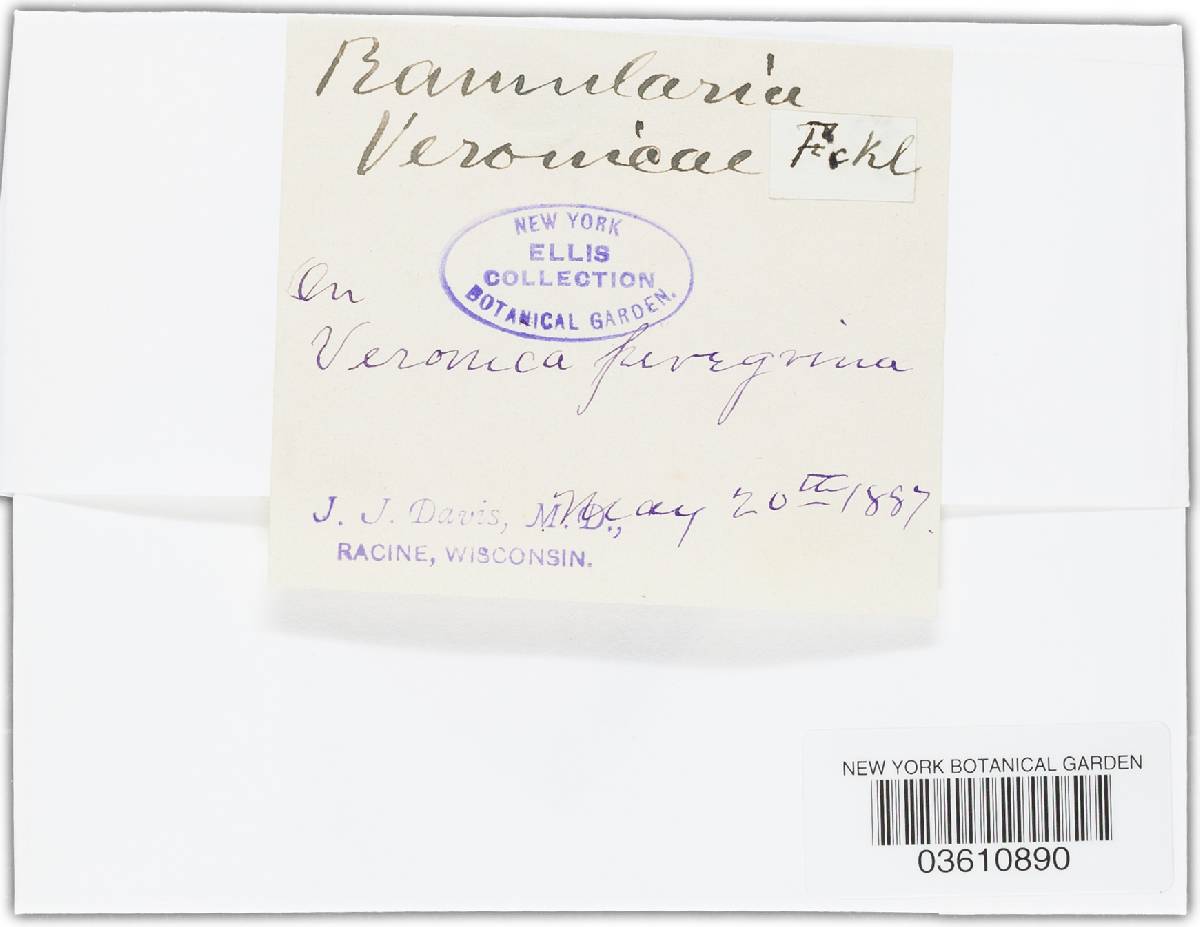 Ramularia
Veronicae Fckl
NEW YORK
ELLIS
COLLECTION
BOTANICAL GARDEN.
On
Veronica peregrina
J. J. Davis, M. D., May 20th 1887.
RACINE, WISCONSIN.
NEW YORK BOTANICAL GARDEN
03610890